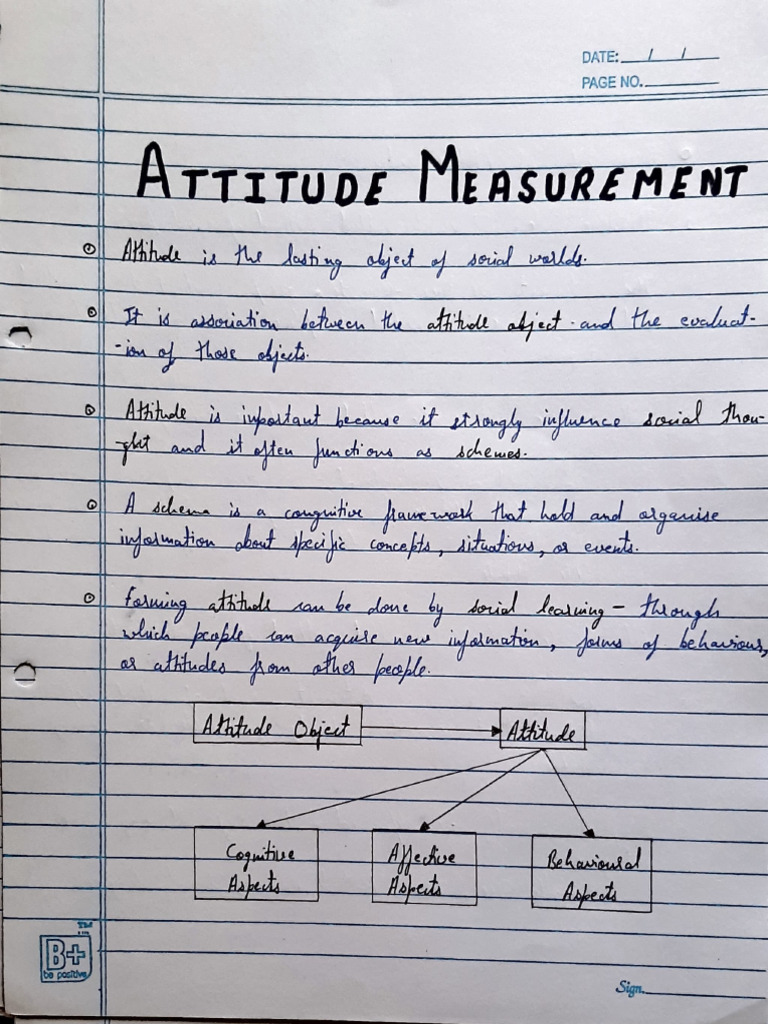 DATE: / /
PAGE NO.
ATTITUDE MEASUREMENT
Attitude is the lasting object of social worlds.
It is association between the attitude object and the evaluat-
-ion of those objects.
Attitude is important because it strongly influence social thou-
-ght and it often functions as schemes.
A schema is a congnitive framework that hold and organise
information about specific concepts, situations, or events.
Forming attitude can be done by social learning - through
which people can acquire new information, forms of behaviours,
or attitudes from other people.
Attitude Object
Attitude
Cognitive
Aspects
Affective
Aspects
Behavioural
Aspects
TM
B+
be positive
Sign.